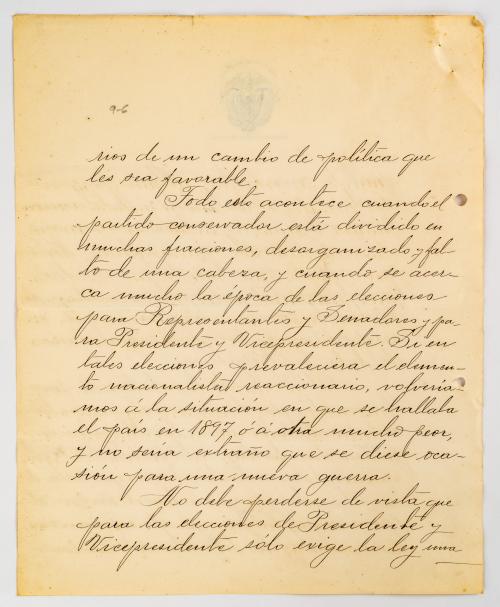 9-6
rios de un cambio de política que
les sea favorable.
Todo esto acontece cuando el
partido conservador está dividido en
muchas fracciones, desorganizado y fal-
to de una cabeza, y cuando se acer-
ca mucho la época de las elecciones
para Representantes y Senadores y pa-
ra Presidente y Vicepresidente. Si en
tales elecciones prevaleciera el elemen-
to nacionalista reaccionario, volvería-
mos á la situación en que se hallaba
el país en 1897 ó á otra mucho peor,
y no sería extraño que se diese oca-
sión para una nueva guerra.
No debe perderse de vista que
para las elecciones de Presidente y
Vicepresidente sólo exige la ley una